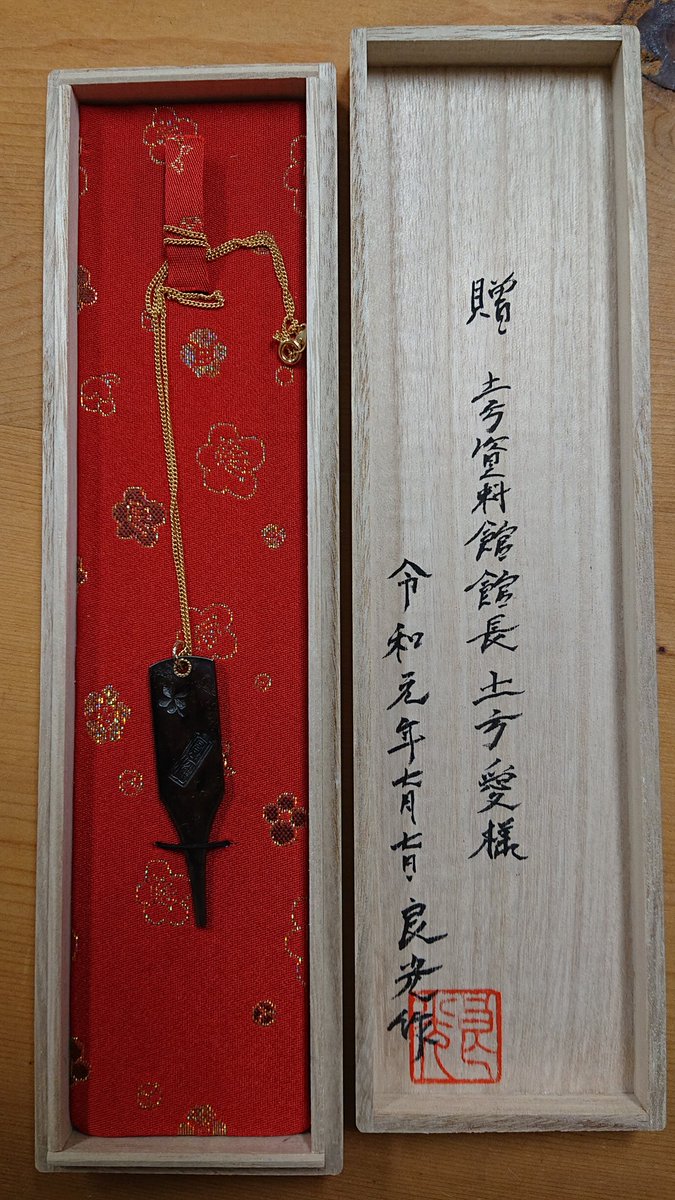 贈 土方資料館館長 土方愛様
令和元年七月七日 良光作